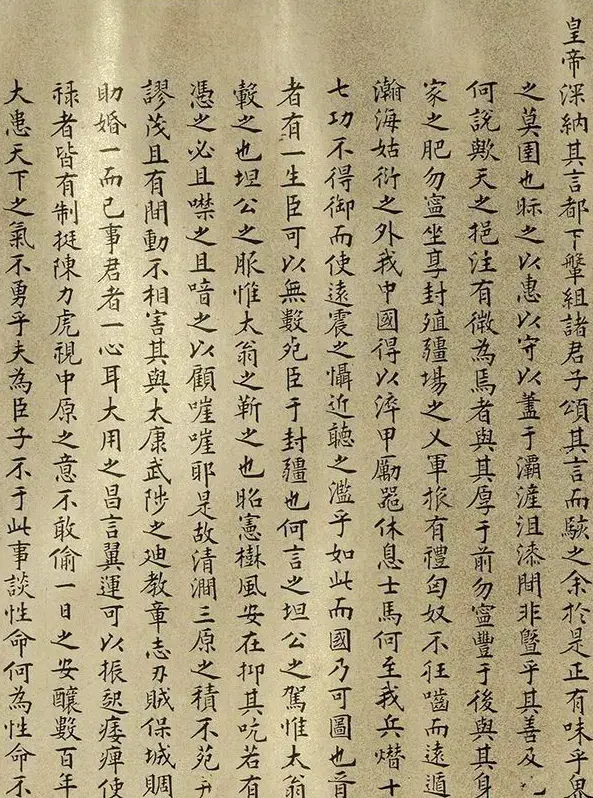 皇帝深納其言都下鞶組諸君子頌其言而駭之余於是正有味乎畀
之莫圉也眎之以惠以守以蓋于灞滻沮漆間非暨乎其善及
何說歟天之挹注有微為焉者與其厚于前勿寍豐于後與其身
家之肥勿寍坐享封殖疆場之乂軍旅有禮匈奴不狂嚙而遠遁
瀚海姑衍之外我中國得以淬甲勵器休息士馬何至我兵熸十
七功不得御而使遠震之懾近聽之濫乎如此而國乃可圖也晉
者有一生臣可以無數死臣于封疆也何言之坦公之駕惟太翁
轂之也坦公之服惟太翁之靳之也昭憲樹風安在抑其吭若有
憑之必且噤之且喑之以顧嗤嗤耶是故清澗三原之積不苑
謬茂且有開動不相害其與太康武陟之廸教章志刃賊保城賙
助婚一而已事君者一心耳大用之昌言翼運可以振起痿痺使
祿者皆有制挺陳力虎視中原之意不敢偷一日之安釀數百年
大患天下之氣不勇乎夫為臣子不于此事談性命何為性命不